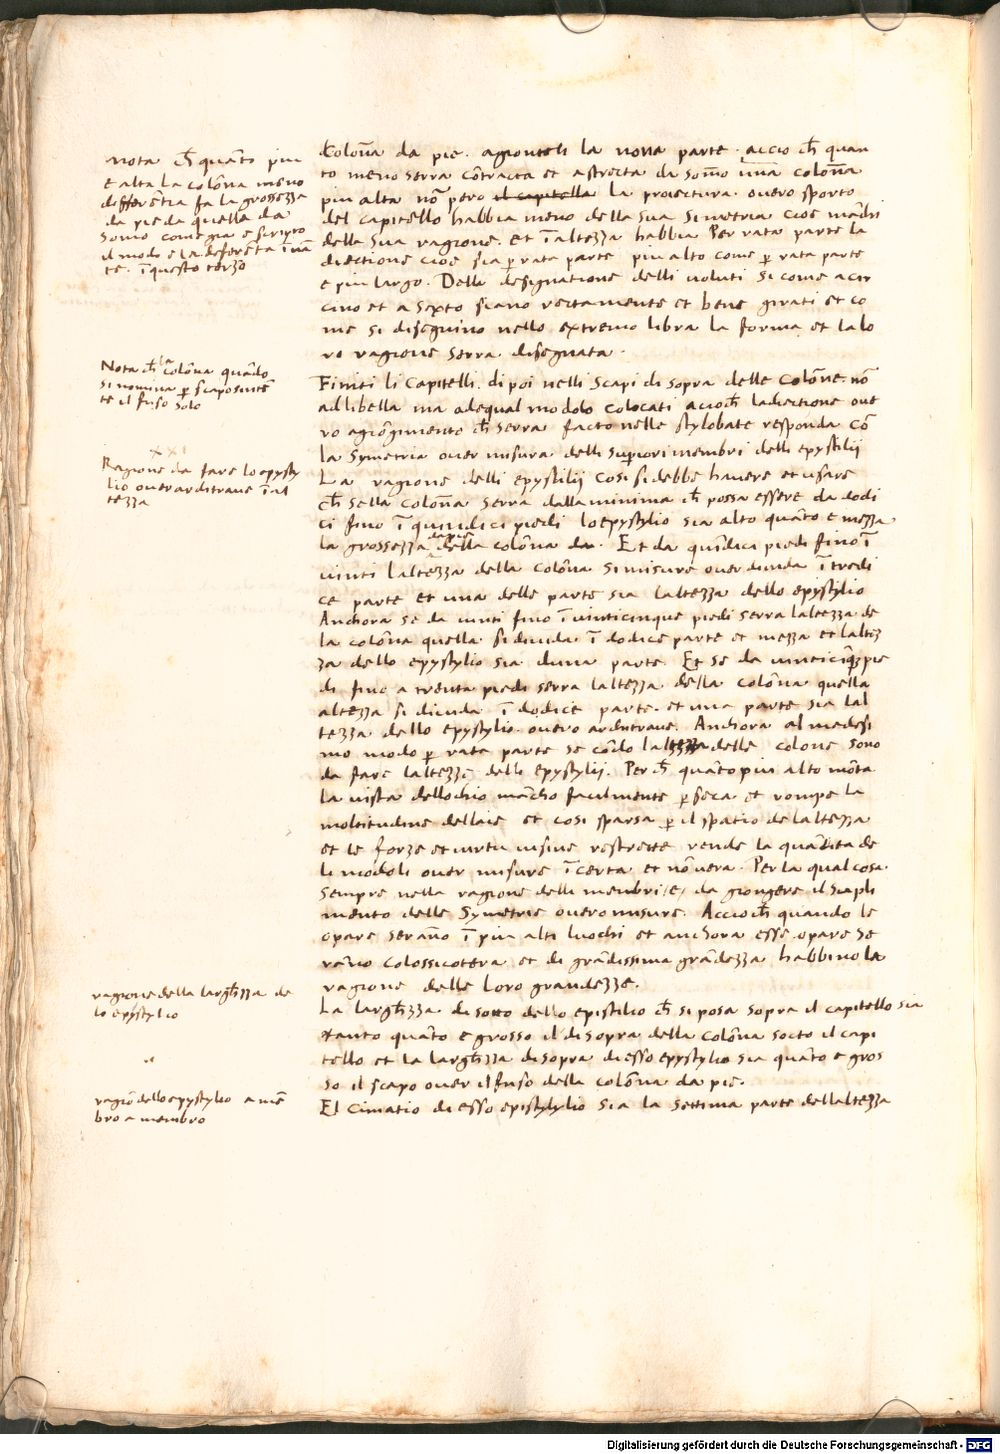 Nota ch̄ quāto piu
e alta la colōna meno
differētia fa la grossezza
da pie da quella da
Somo come gia e scripto
il modo e la deferēta īnā
te. ī questo terzo
Colōna da pie. agiontoli la nona parte. accio ch̄ quan
to meno serra cōtracta et astrecta da som̄o una colōna
piu alta nō pero il capitello la proiectura. overo sporto
del capitello habbia meno della sua simetria cioe mādri
della sua ragione. et ī altezza habbia Per rata parte la
diectione cioe sia p rata parte piu alto come p rata parte
e piu largo. Della designatione delli voluti si come a cir
cino et a sexto siano rectamente et bene girati et co
me si diseguino nello extremo libra la forma et la lo
ro ragione serra disegnata.
Nota ch̄ la colōna quādo
si nomina p scapo sinte
te il fuso solo
Finiti li Capitelli. di poi nelli scapi di sopra delle Colōne. nō
ad libella ma adequal modolo colocati acioch̄ ladiectione ove
ro agiōgimento ch̄ serra facto nelle stylobate responda cō
la Symetria over misura delli supiori membri delli epystilij
XXI
Ragione da fare lo epysty
lio over arditrave ī al
tezza
La ragione delli epystilij cosi si debbe havere et usare
ch̄ se lla colōna serra dalla minima ch̄ possa essere da dodi
ci fino ī quindici piedi lo epystylio sia alto quāto e mezza
la grossezza della colōna da pie. Et da quīdici piedi fino ī
vinti laltezza della colōna si misure over divida ī tredi
ce parte et una delle parte sia laltezza dello epystilio
Anchora se da vinti fino ī vinticinque piedi serra laltezza de
la colōna quella si divida ī dodice parte et mezza et laltez
za dello epystylio sia duna parte. Et se da vinticīq pie
di fino a trenta piedi serra laltezza della colōna quella
altezza si divida ī dodice parte. et una parte sia lal
tezza dello epystylio. overo arditrave. Anchora al medesi
mo modo p rata parte se cōdo laltezza delle colone sono
da fare laltezze delli epystylij. Per ch̄ quāto piu alto mōta
la vista dellochio mācho facilmente p seca et rompe la
moltitudine dellaie et cosi sparsa p il spatio de laltezza
et le forze et virtu visive restrecte rende la quātita de
li modoli over misure īcerta et nō vera. Per la qual cosa
sempre nella ragione delli membri /e/ da giongere il supli
mento delle Symetrie overo misure. Accioch̄ quando le
opare serāno ī piu alti luochi et anchora esse. opare se
rāno colossicotera et di grādissima grādezza habbino la
ragione delle loro grandezze.
ragione della largh̄zza de
lo epystylio
La largh̄zza di sotto dello epistilio ch̄ si posa sopra il capitello sia
tanto quāto e grosso il di sopra della colōna socto il capi
tello et la largh̄zza di sopra di esso epystylio sia quāto e gros
so il scapo over il fuso della colōna da pie.
ragiō dello epystylio a mē
bro a membro
El Cimatio di esso epistylylio sia la settima parte dellaltezza
Digitalisierung gefördert durch die Deutsche Forschungsgemeinschaft - DFG